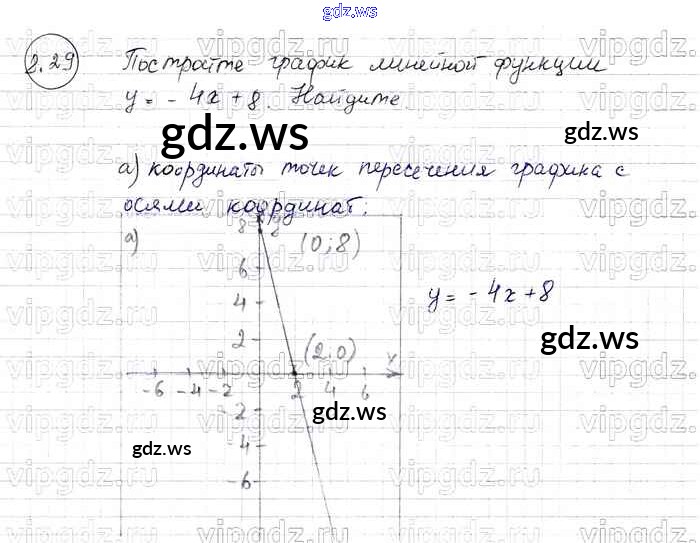 gdz.ws
2.29 Постройте график линейной функции
y = - 4x + 8. Найдите
gdz.ws
а) координаты точек пересечения графика с
осями координат:
а)
8 y (0; 8)
6
4 y = - 4x + 8
2 (2; 0) x
gdz.ws
-6 -4 -2 2 4 6
-2 gdz.ws
-4 gdz.ws
-6
vipgdz